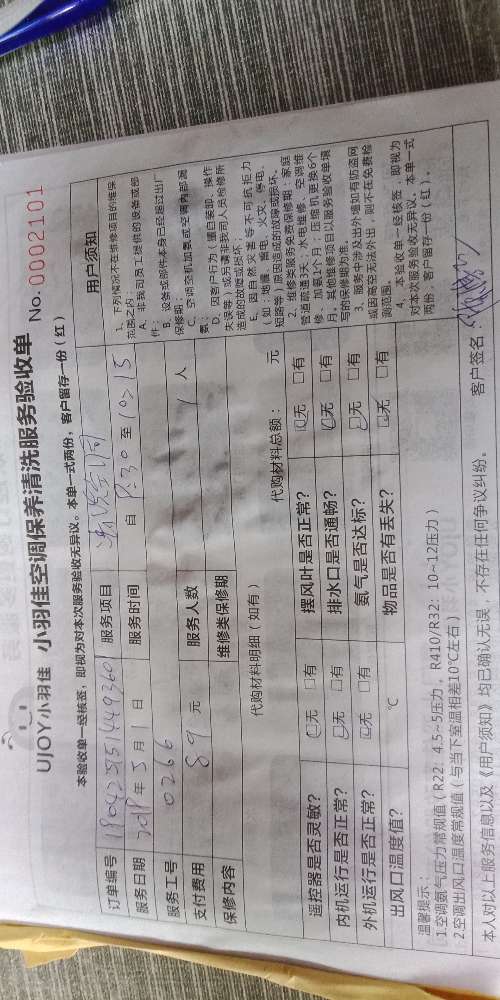 UJOY小羽佳 小羽佳空调保养清洗服务验收单 No.0002101
本验收单一经核签，即视为对本次服务验收无异议。本单一式两份，客户留存一份（红）
订单编号
服务项目
服务日期 2018 年 5 月 1 日
服务时间 自 9:30 至 10:15
服务工号 0266
支付费用 89 元
服务人数 1 人
保修内容
维修类保修期
用户须知
1、下列情况不在维修项目的维保
范围之内：
A、非我司员工提供的设备或部
件；
B、设备或部件本身已经超过出厂
保修期；
C、空调整机加氨或空调内部漏
氨；
D、因客户行为（擅自装卸、操作
失误等）或另请非我司人员检修所
造成的故障或损坏；
E、因自然灾害等不可抗拒力
（如：地震、雷电、火灾、停电、
短路等）原因造成的故障或损坏。
2、维修类服务免费保修期：家庭
管道疏通3天；水电维修、空调维
修、加氨1个月；压缩机更换6个
月。其他维修项目以服务验收单填
写的保修期为准。
3、服务中涉及出外墙如有防盗网
或因高空无法外出，则不在免费检
测范围。
4、本验收单一经核签，即视为
对本次服务验收无异议。本单一式
两份，客户留存一份（红）。
代购材料明细（如有） 代购材料总额： 元
遥控器是否灵敏？ ☑无 □有 摆风叶是否正常？ ☑无 □有
内机运行是否正常？ ☑无 □有 排水口是否通畅？ ☑无 □有
外机运行是否正常？ ☑无 □有 氨气是否达标？ ☑无 □有
出风口温度值？ ℃ 物品是否有丢失？ ☑无 □有
温馨提示：
1.空调氨气压力常规值（R22：4.5~5压力，R410/R32：10~12压力）
2.空调出风口温度常规值（与当下室温相差10℃左右）
本人对以上服务信息以及《用户须知》均已确认无误，不存在任何争议纠纷。 客户签名：